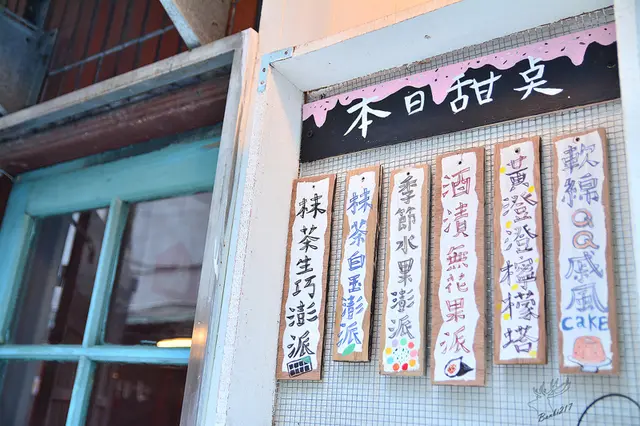 本日甜点
抹茶生巧澎派
抹茶白玉澎派
季節水果澎派
酒漬無花果派
黃澄澄檸檬塔
軟綿QQ戚風
CAKE